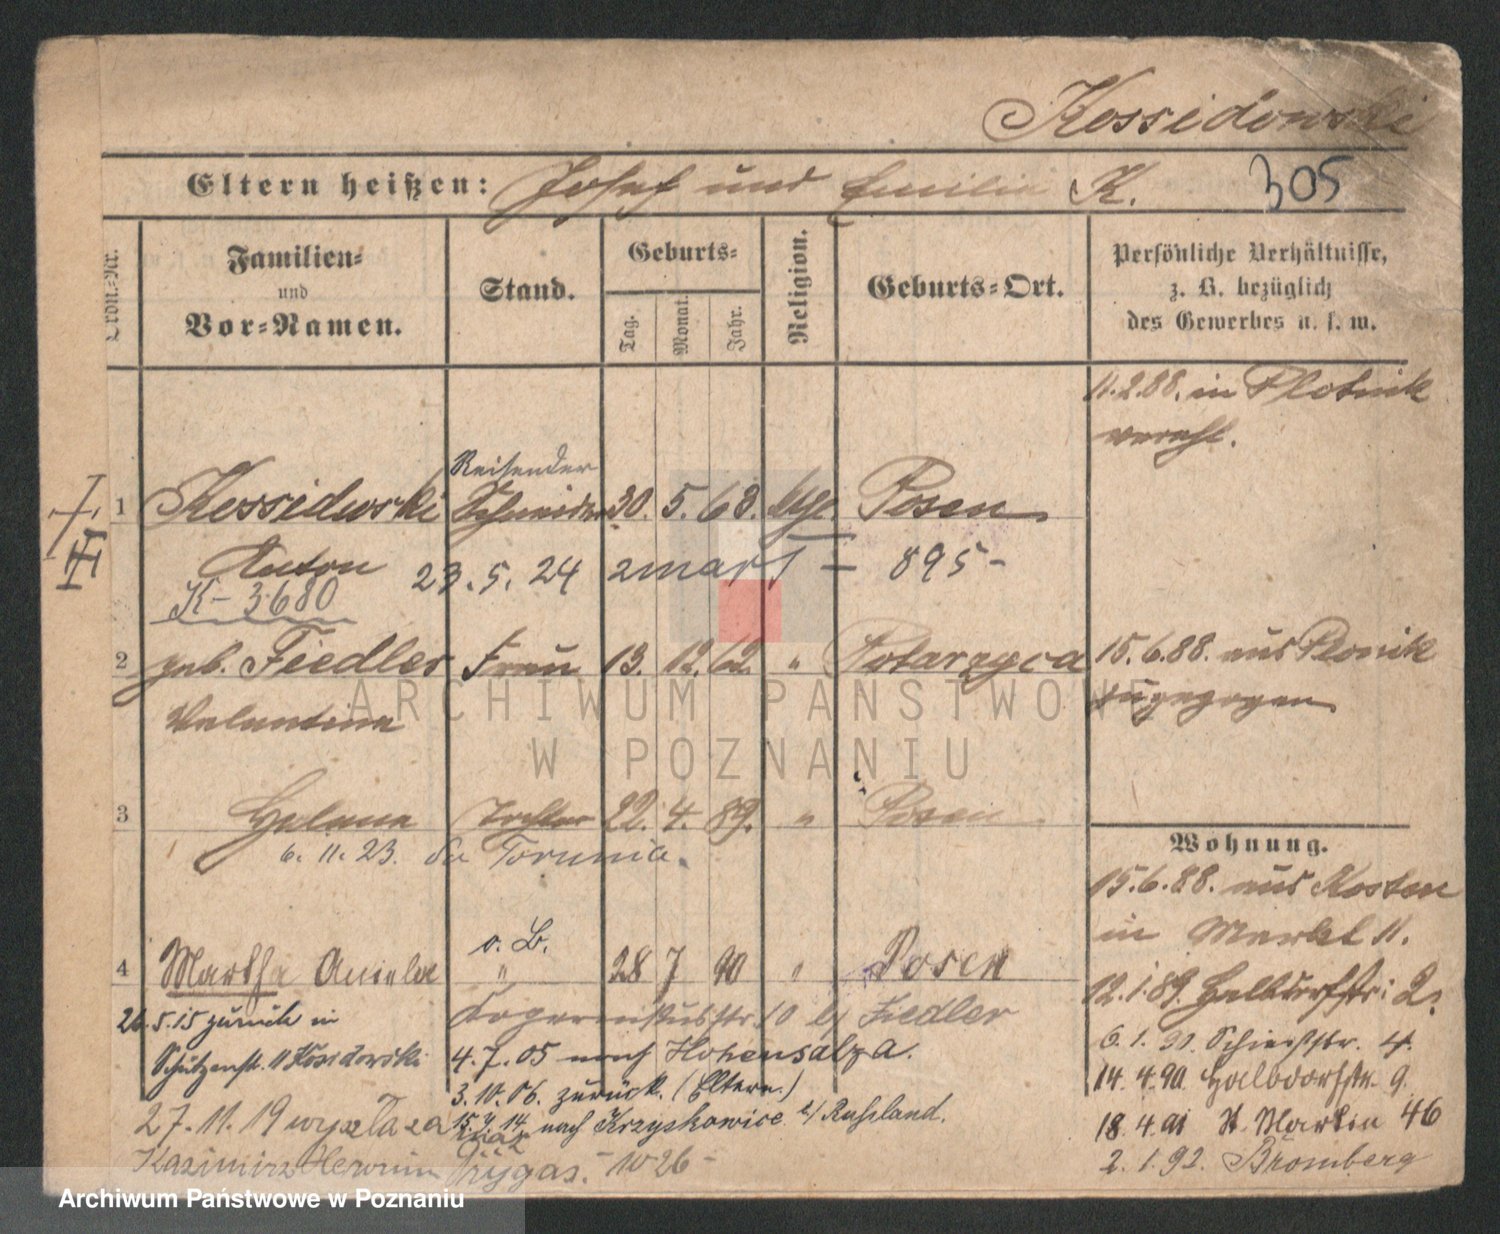 Kossidowski
Eltern heißen: Josef und Emilie K. 305
Ordn.-Nr.
Familien-
und
Vor-Namen.
Stand.
Geburts-
Tag.
Monat.
Jahr.
Religion.
Geburts-Ort.
Persönliche Verhältnisse,
z. B. bezüglich
des Gewerbes u. s. w.
11.2.88. in Plotnik
verehl.
Reisender
1 Kossidowski Schneider 30. 5. 63. kth. Posen
Anton 23.5.24 zmarł - 895-
K-3680
2 geb. Fiedler Frau 13. 12. 62. " Potarzyca
Valentine
15.6.88. aus Plonik
zugezogen
3 Helene Tochter 22. 4. 89. " Posen
6.11.23. do Torunia.
o. B.
4 Martha Aniela " 28 7 90 " Posen
26.5.15 zurück in
Schützenstr. 11 Kosidowski
10 b/ Fiedler
4.7.05 nach Hohensalza.
3.10.06. zurück. (Eltern.)
15.4.14 nach Krzyskowice b/ Russland.
27.11.19 wyszła za mąż
Kazimirz Herwin 1026-
Wohnung.
15.6.88. aus Kosten
in Markt 11.
12.1.89. Halbdorfstr: 2.
6.1.90. Schiesstr. 4.
14.4.90. Halbdorfstr. 9.
18.4.91 St. Martin 46
2.1.92. Bromberg
ARCHIWUM PAŃSTWOWE
W POZNANIU
Archiwum Państwowe w Poznaniu